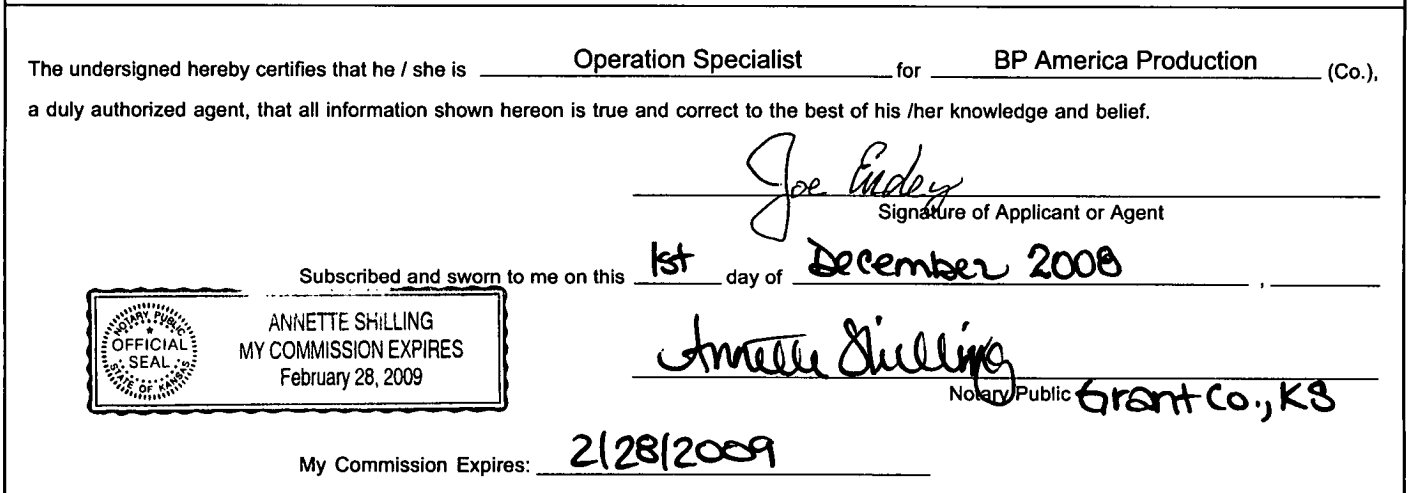 The undersigned hereby certifies that he / she is Operation Specialist for BP America Production (Co.),
a duly authorized agent, that all information shown hereon is true and correct to the best of his /her knowledge and belief.
Joe Endey
Signature of Applicant or Agent
Subscribed and sworn to me on this 1st day of December 2008 ,
NOTARY PUBLIC
OFFICIAL
SEAL
STATE OF KANSAS
ANNETTE SHILLING
MY COMMISSION EXPIRES
February 28, 2009
Annette Shilling
Notary Public Grant Co., KS
My Commission Expires: 2/28/2009